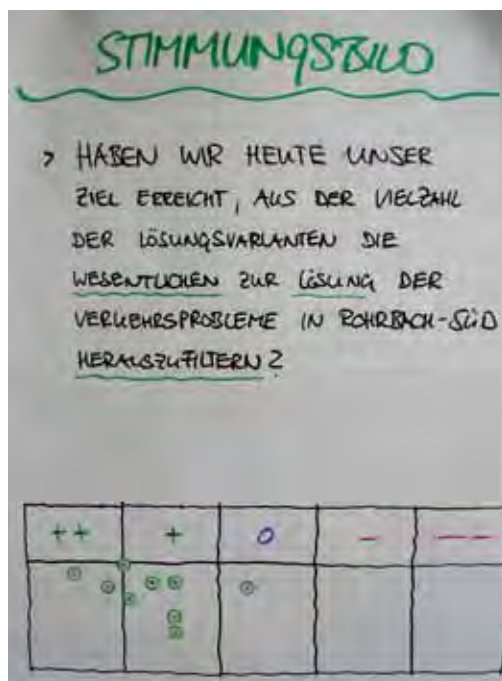 STIMMUNGSBILD
> HABEN WIR HEUTE UNSER
ZIEL ERREICHT, AUS DER VIELZAHL
DER LÖSUNGSVARIANTEN DIE
WESENTLICHEN ZUR LÖSUNG DER
VERKEHRSPROBLEME IN ROHRBACH-SÜD
HERAUSZUFILTERN?
++ + O - --